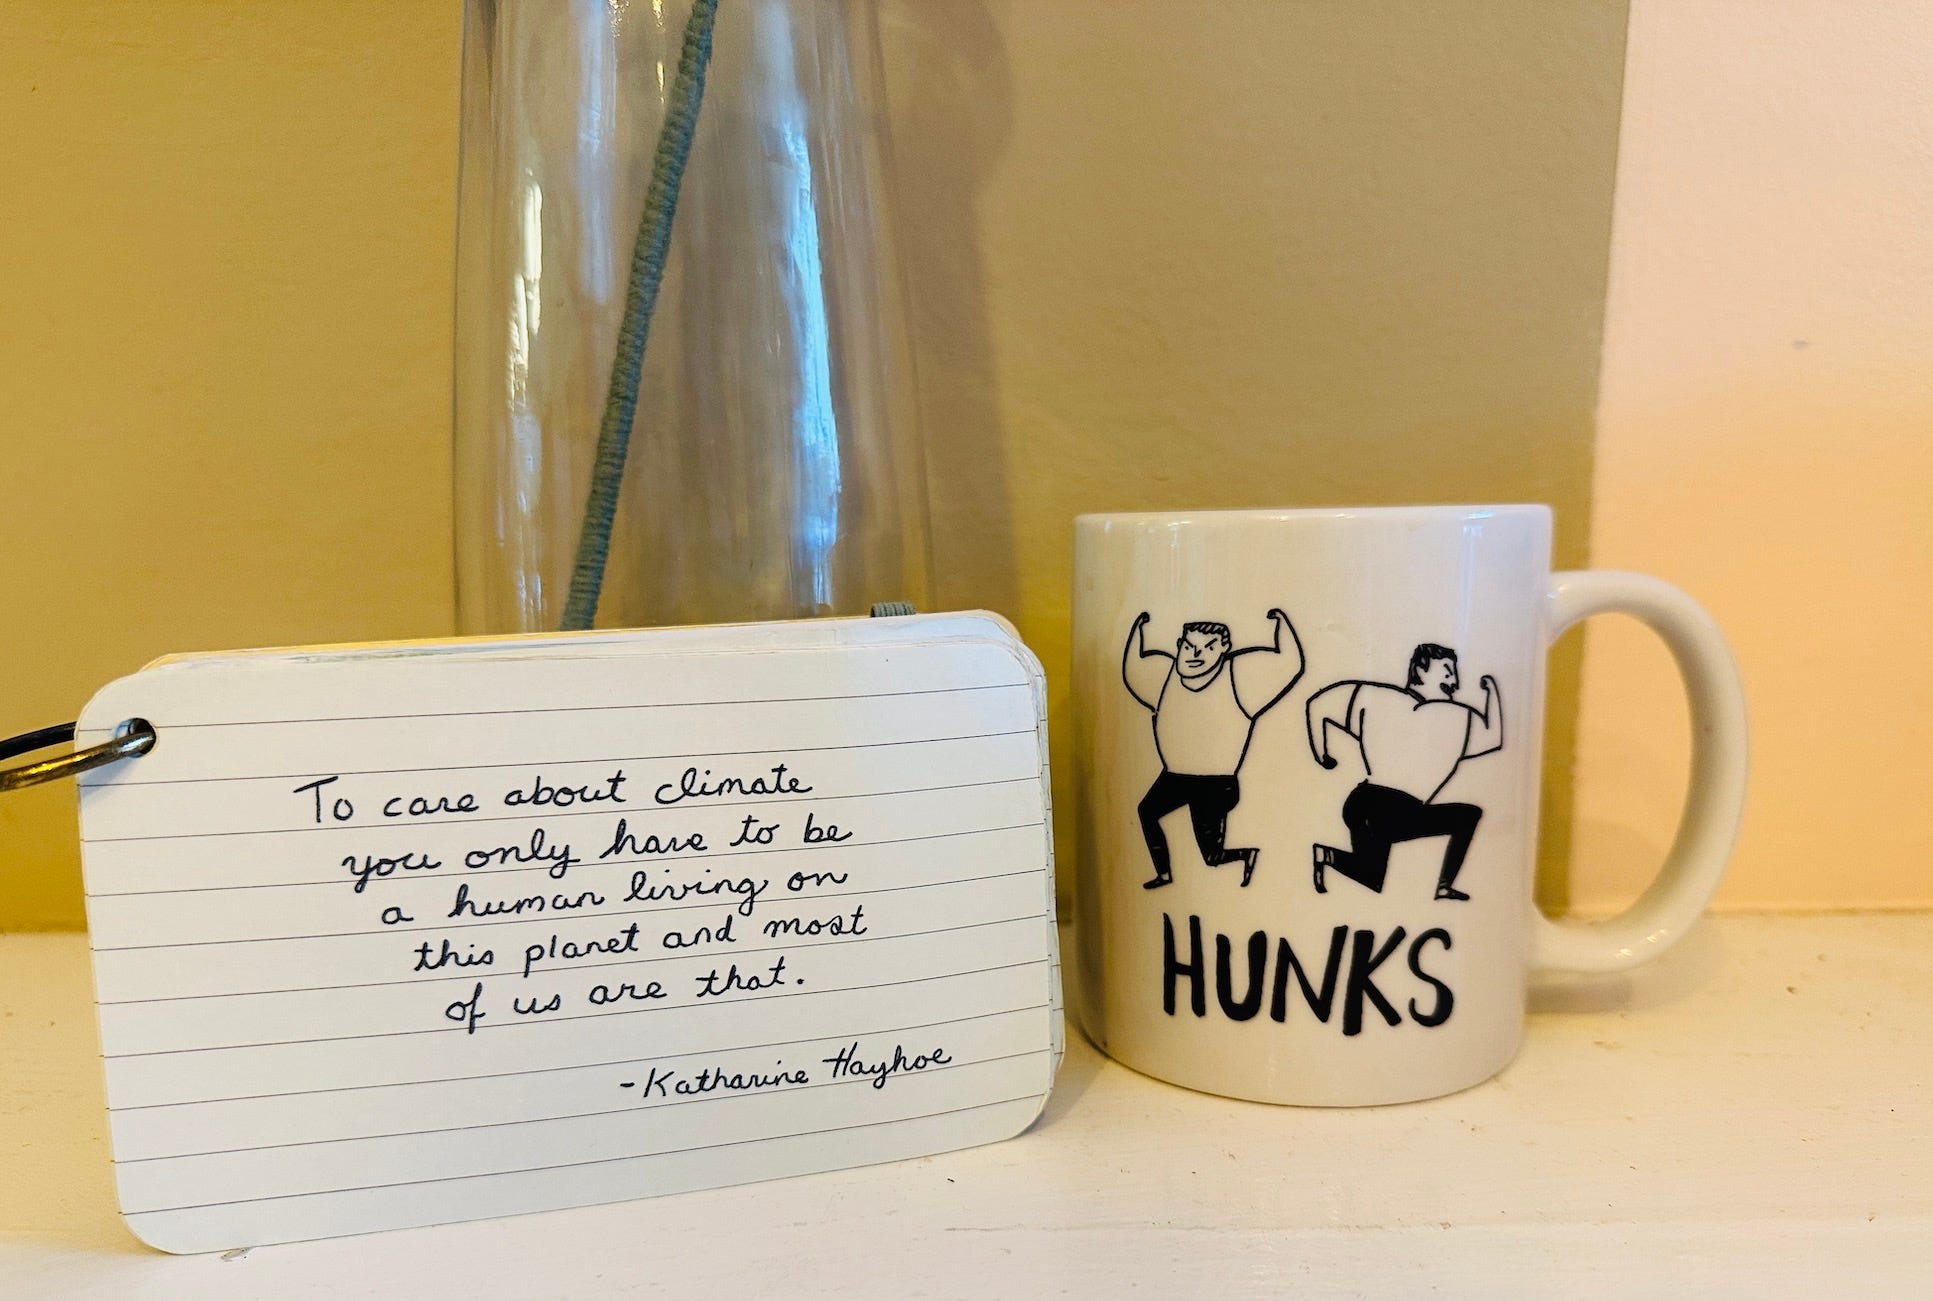 To care about climate
you only have to be
a human living on
this planet and most
of us are that.
-Katharine Hayhoe
HUNKS